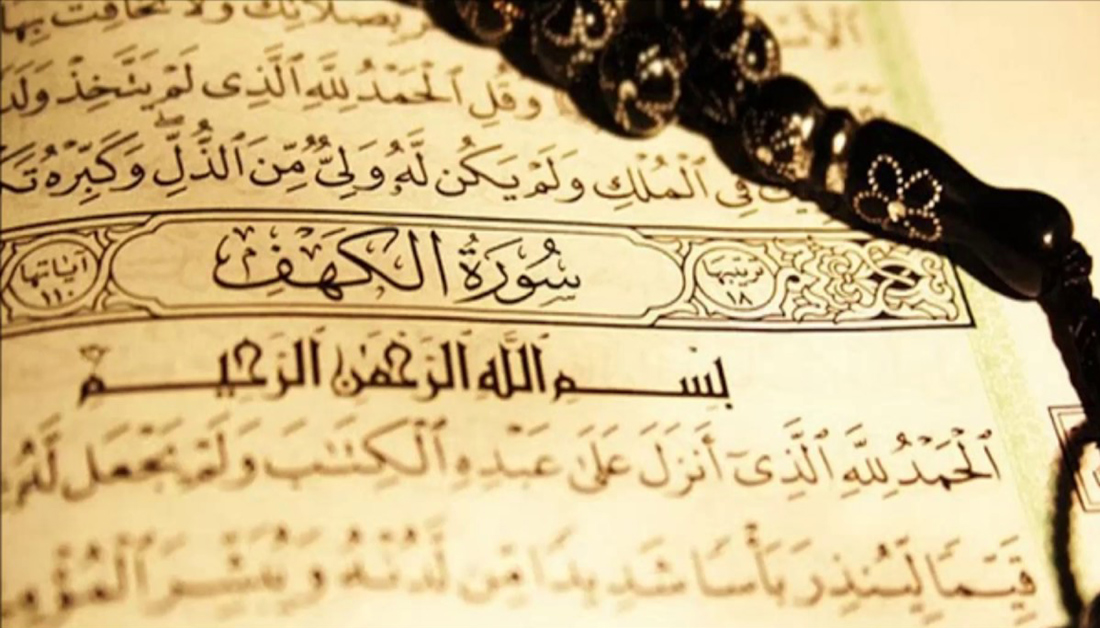 بصلاتك ولا تخافت بها
وَقُلِ ٱلْحَمْدُ لِلَّهِ ٱلَّذِى لَمْ يَتَّخِذْ
فِى ٱلْمُلْكِ وَلَمْ يَكُن لَّهُۥ وَلِىٌّ مِّنَ ٱلذُّلِّ وَكَبِّرْهُ
ترتيبها ١٨ سُورَةُ الكَهْفِ آياتها ١١٠
بِسْمِ ٱللَّهِ ٱلرَّحْمَٰنِ ٱلرَّحِيمِ
ٱلْحَمْدُ لِلَّهِ ٱلَّذِىٓ أَنزَلَ عَلَىٰ عَبْدِهِ ٱلْكِتَٰبَ وَلَمْ يَجْعَل لَّهُۥ
قَيِّمًا لِّيُنذِرَ بَأْسًا شَدِيدًا مِّن لَّدُنْهُ وَيُبَشِّرَ